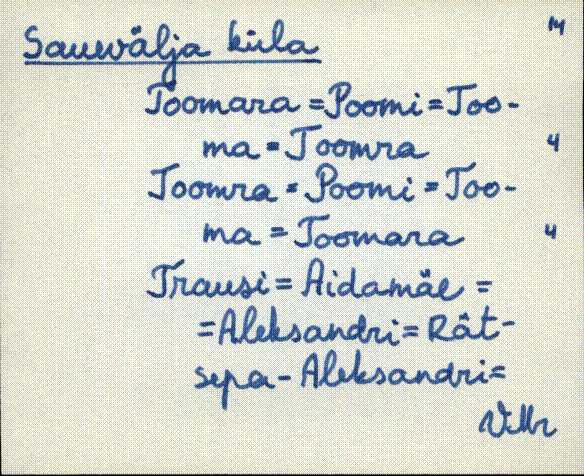 M
Sauevälja küla
Toomara = Poomi = Too-
ma = Toomra 4
Toomra = Poomi = Too-
ma = Toomara 4
Trausi = Aidamäe =
= Aleksandri = Rät-
sepa - Aleksandri =